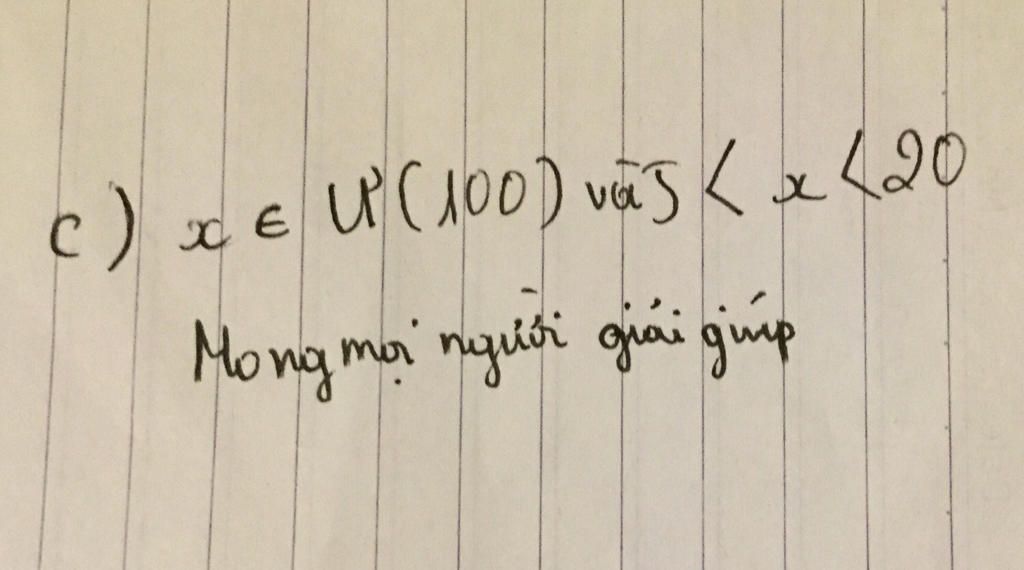 c) x ∈ Ư(100) và 5 < x < 20
Mong mọi người giải giúp